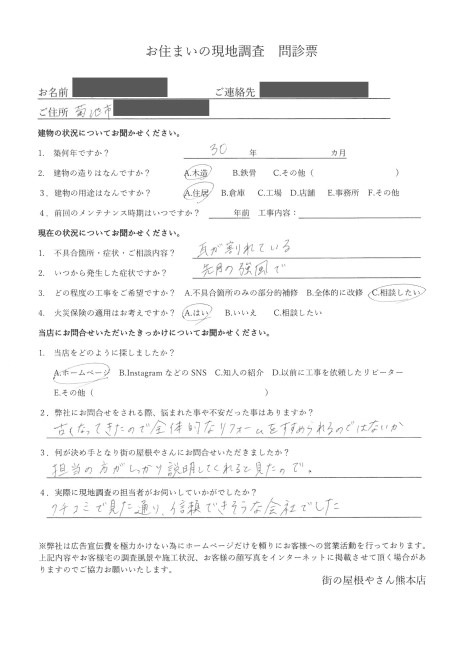 お住まいの現地調査 問診票
お名前 ご連絡先
ご住所 菊池市
建物の状況についてお聞かせください。
1. 築何年ですか? 30 年 カ月
2. 建物の造りはなんですか? A.木造 B.鉄骨 C.その他( )
3. 建物の用途はなんですか? A.住居 B.倉庫 C.工場 D.店舗 E.事務所 F.その他
4. 前回のメンテナンス時期はいつですか? 年前 工事内容:
現在の状況についてお聞かせください。
1. 不具合箇所・症状・ご相談内容? 瓦が割れている
2. いつから発生した症状ですか? 先月の強風で
3. どの程度の工事をご希望ですか? A.不具合箇所のみの部分的補修 B.全体的に改修 C.相談したい
4. 火災保険の適用はお考えですか? A.はい B.いいえ C.相談したい
当店にお問合せいただいたきっかけについてお聞かせください。
1. 当店をどのように探しましたか?
A.ホームページ B.Instagram などの SNS C.知人の紹介 D.以前に工事を依頼したリピーター
E.その他( )
2. 弊社にお問合せをされる際、悩まれた事や不安だった事はありますか?
古くなってきたので全体的なリフォームをすすめられるのではないか
3. 何が決め手となり街の屋根やさんにお問合せいただきましたか?
担当の方がしっかり説明してくれると見たので。
4. 実際に現地調査の担当者がお伺いしていかがでしたか?
クチコミで見た通り、信頼できそうな会社でした
※弊社は広告宣伝費を極力かけない為にホームページだけを頼りにお客様への営業活動を行っております。
上記内容やお客様宅の調査風景や施工状況、お客様の顔写真をインターネットに掲載させて頂く場合があ
りますのでご協力お願いいたします。
街の屋根やさん熊本店